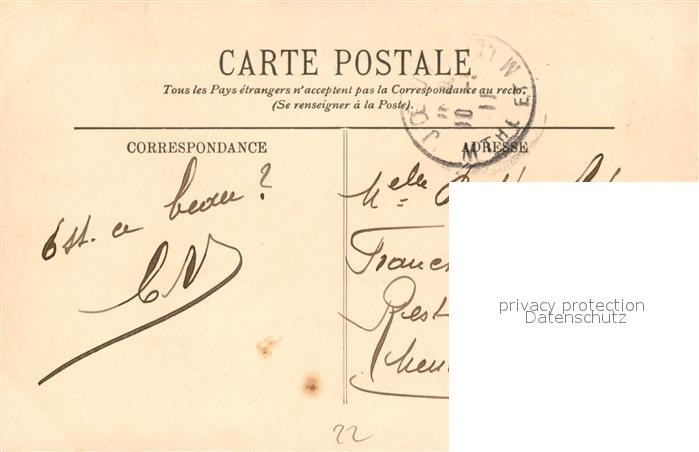 CARTE POSTALE
Tous les Pays étrangers n'acceptent pas la Correspondance au recto.
(Se renseigner à la Poste).
CORRESPONDANCE
ADRESSE
Est. ce beau?
CN
Melle
Franc
Rest
privacy protection
Datenschutz
22